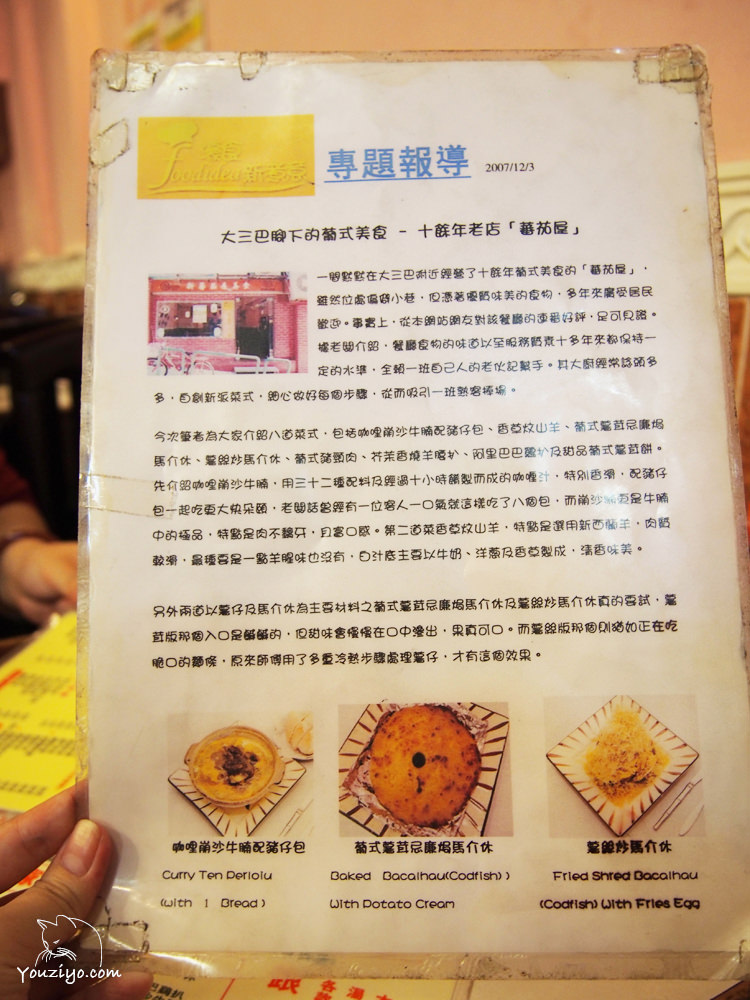 foodidea新蕃茄
專題報導
2007/12/3
大三巴腳下的葡式美食 - 十餘年老店「蕃茄屋」
一間默默在大三巴附近經營了十餘年葡式美食的「蕃茄屋」，
雖然位處偏僻小巷，但憑著優質味美的食物，多年來廣受居民
歡迎。事實上，從本網站網友對該餐廳的連番好評，足可見證。
據老闆介紹，餐廳食物的味道以至服務質素十多年來都保持一
定的水準，全賴一班自己人的老伙記幫手。其大廚經常諗頭多
多，自創新派菜式，細心做好每個步驟，從而吸引一班熟客捧場。
今次筆者為大家介紹八道菜式，包括咖哩崩沙牛腩配豬仔包、香草炆山羊、葡式薯茸忌廉焗
馬介休、薯絲炒馬介休、葡式豬頸肉、芥茉香燒羊腰扒、阿里巴巴雞扒及甜品葡式薯茸餅。
先介紹咖哩崩沙牛腩，用三十二種配料及經過十小時餚製而成的咖喱汁，特別香滑，配豬仔
包一起吃更大快朵頤，老闆話曾經有一位客人一口氣就這樣吃了八個包，而崩沙腩更是牛腩
中的極品，特點是肉不黐牙，且富口感。第二道菜香草炆山羊，特點是選用新西蘭羊，肉質
軟滑，最種要是一點羊腥味也沒有，白汁底主要以牛奶、洋蔥及香草製成，清香味美。
另外兩道以薯仔及馬介休為主要材料之葡式薯茸忌廉焗馬介休及薯絲炒馬介休真的要試，薯
茸版那個入口是鹹鹹的，但甜味會慢慢在口中滲出，果真可口。而薯絲版那個則猶如正在吃
脆口的麵條，原來師傅用了多重冷熱步驟處理薯仔，才有這個效果。
咖哩崩沙牛腩配豬仔包
Curry Ten Derloiu
(with 1 Bread )
葡式薯茸忌廉焗馬介休
Baked Bacaihau(Codfish) )
With Potato Cream
薯絲炒馬介休
Fried Shred Bacaihau
(Codfish) With Fries Egg
Youziyo.com